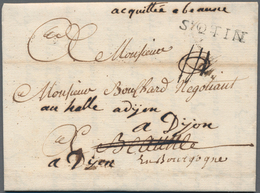 acquittée a beaune
STQTIN
Monsieur
Monsieur Bouchard Negotiant
au halle adijon
a Dijon
a Dijon
En Bourgogne